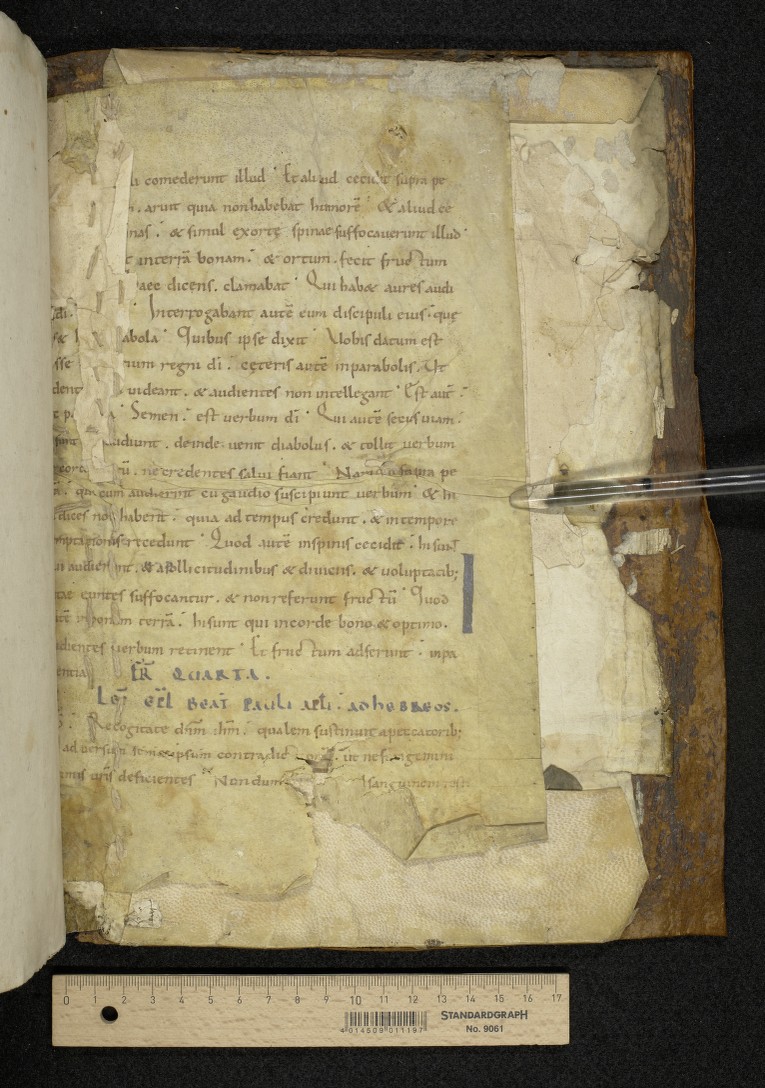 comederunt illud · Et aliud cecidit supra pe
aruit quia non habebat humorē · & aliud ce
nas · & simul exortę spinae suffocauerunt illud ·
interrā bonam · & ortum · fecit fructum
haec dicens · clamabat · Qui hab& aures audi
di · Interrogabant autē eum discipuli eius · quę
abola · Quibus ipse dixit · Uobis datum est
sse rium regni dī · cęteris autē in parabolis · Ut
dent uideant · & audientes non intellegant · Est aut̄ ·
Semen · est uerbum dī · Qui autē secus uiam ·
sunt audiunt · deinde uenit diabolus · & tollit uerbum
ne credentes salui fiant · Nam supra pe
qui cum audierint cū gaudio suscipiunt uerbum · & hi
dices non habent · quia ad tempus credunt · & in tempore
mptationis recedunt · Quod autē in spinis cecidit · hi sunt
audierunt · & a sollicitudinibus & diuitiis · & uoluptatib;
tae euntes suffocantur · & non referunt fructū · Quod
in bonam terrā · hi sunt qui in corde bono & optimo ·
dientes uerbum retinent · Et fructum adferunt · in pa
entia FR̄ QUARTA ·
LEC̄ EPL̄ BEAT̄ PAULI APL̄I · AD HEBREOS ·
Recogitate dn̄m ih̄m · qualem sustinuit a peccatorib;
aduersum semetipsum contradictionē · ut ne fatigemini
imis ur̄is deficientes · Nondum sanguinem
0 1 2 3 4 5 6 7 8 9 10 11 12 13 14 15 16 17
4 014509 011197
STANDARDGRAPH
No. 9061